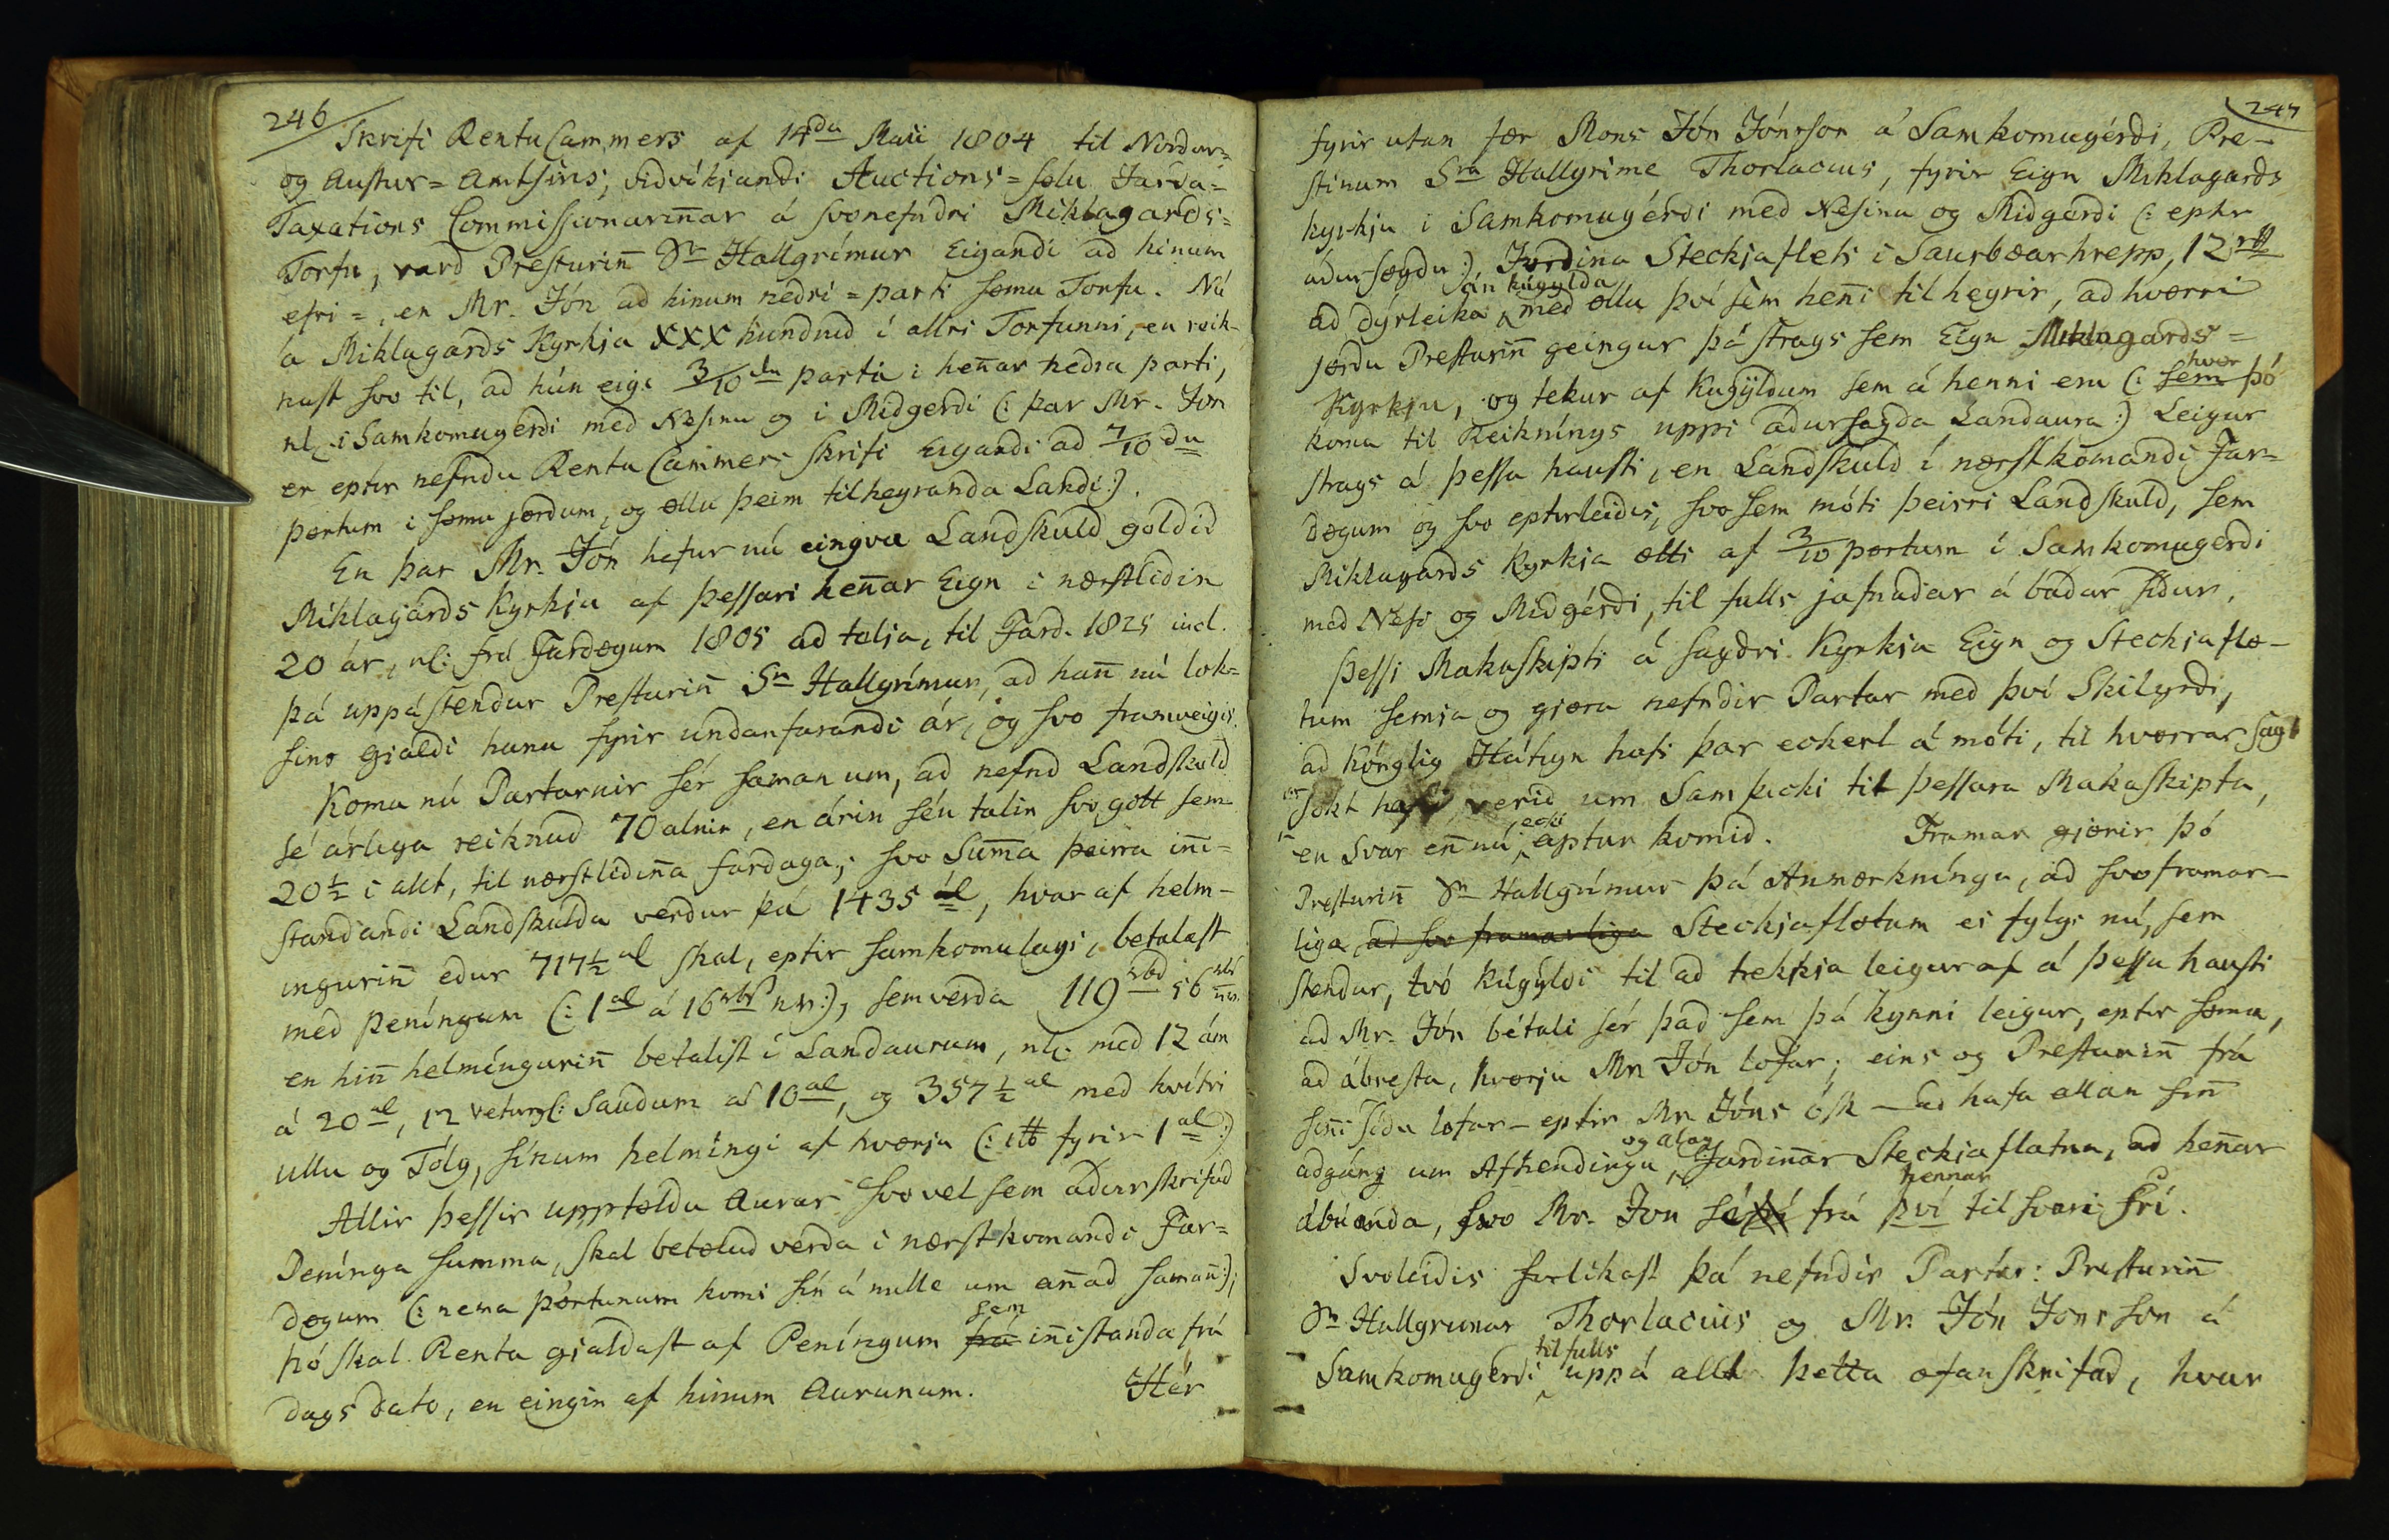 246
Skrifi RentuCammers af 14da Maii 1804 til Nordur=
og Austur=Amtsins, vidvíkjandi Auctions=sølu Jarda=
Taxations Commissionarinnar á svonefndri Miklagards=
Torfu, vard Presturinn Sr Hallgrímur Eigandi ad hinum
efri=, en Mr. Jón ad hinum nedri=parti sømu Torfu. Nú
a Miklagards Kyrkja XXX hundrud í allri Torfunni, en reik-
nast svo til, ad hún eigi 3/10du parta i hennar nedra parti,
nl: i Samkomugérdi med Nesinu og i Midgerdi (: þar Mr. Jón
er eptir nefndu RentuCammers skrifi Eigandi ad 7/10du
pørtum i sømu jørdum, og øllu þeim tilheyranda Landi:).
En þar Mr. Jón hefur nú eingva Landskuld goldid
Miklagards Kyrkju af þessari hennar Eign i nærstlidin
20 ár, nl: frá Fardøgum 1805 ad telja, til Fard. 1825 incl.
þá uppástendur Presturinn Sr Hallgrímur, ad hann nú lok-
sins gjaldi hana fyrir undanfarandi ár, og svo framveigis.
Koma nú Partarnir sér saman um, ad nefnd Landskuld
sé árliga reiknud 70 alnir, en árin séu talin svo gott sem
20½ i allt, til nærstlidinna fardaga; svo Summa þeirra inni-
standandi Landskulda verdur þá 1435 al, hvar af helm-
ingurinn edur 717½ al skal, eptir samkomulagi, betalast
med peníngum (: 1 al á 16 rbs n.v:), sem verda 119 rbd 56 rbs n.v.
en hinn helmíngurinn betalist í Landaurum, nl: med 12 ám
á 20 al, 12 veturgl: Saudum á 10 al, og 357½ al med hvítri
ullu og Tólg, sínum helmíngi af hvørju (: 1 ℔ fyrir 1 al:)
Allir þessir upptøldu Aurar svovel sem ádurskrifud
Penínga summa, skal betølud verda i nærstkomandi Far=
døgum (: nema pørtunum komi sín á mille um annad samann:),
þó skal Renta gjaldast af Peníngum þá sem innistanda frá
dags dato, en eingin af hinum Aurunum.
Hér
247
fyrir utan fær Mons Jón Jónsson á Samkomugérdi, Pre-
stinum Sra Hallgríme Thorlacius, fyrir Eign Miklagards
kyrkju i Samkomugérdi med Nesinu og Midgerdi (: eptir
ádursøgdu:), Jørdina Steckjaflete i Saurbæarhrepp, 12
ad dýrleika án kúgylda med øllu því sem henni tilheyrir, ad hvørri
jørdu Presturinn geingur þá strags sem Eign Miklagards=
Kyrkju, og tekur af Kugyldum sem á henni eru (: sem hvør þó
koma til Reikníngs uppi ádursagda Landaura:) Leigur
strags á þessu hausti, en Landskuld í nærstkomandi Far=
døgum og svo eptirleidis, svo sem móti þeirri Landskuld, sem
Miklagards Kyrkja átti af 3/10 pørtum i Samkomugérdi
med Nesi og Midgérdi, til fulls jafnadar á bádar sídur.
Þessi Makaskipti á sagdri Kyrkju Eign og Steckjaflø-
tum semja og gjøra nefndir Partar med því Skilyrdi,
ad Kónglig Hátign hafi þar eckert á móti, til hvørrar sagt
er sókt hafi verid um Samþicki til þessara Makaskipta,
en Svar enn nú ecki aptur komid. Framar gjørir þó
Presturinn Sr Hallgrímur þá Anmærkníngu, ad svoframar-
liga ad svo framarliga Steckjafløtum ei fylgi nú, sem
stendur, tvö kúgýldi til ad trekkja leigur af á þessu hausti
ad Mr. Jón betali sér þad sem þá kynni leigur, eptir sømu,
ad ábresta, hvørju Mr Jón lofar; eins og Presturinn frá
sinni sídu lofar – eptir Mr. Jóns ósk – ad hafa allan sinn
adgáng um Afhendíngu og alag Jardinnar Steckjaflatna, ad hennar
ábúanda, svo Mr. Jón sé frá því hennar tilsvari frí.
Svoleidis forlíkast þá nefndir Partar: Presturinn
Sr Hallgrímur Thorlacius og Mr. Jón Jonsson á
Samkomugérdi til fulls uppá allt þetta ofanskrifad, hvar